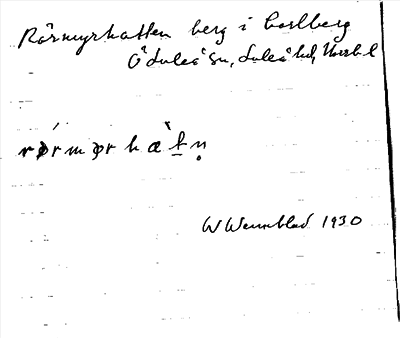 Rörmyrkatten berg i Carlberg
Ö Luleå sn, Luleå hd, Norrb l
W Wennblad 1930